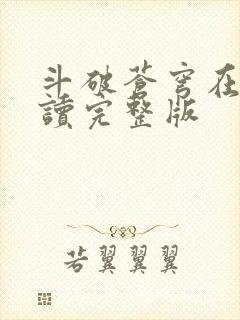 斗破苍穹在
讀完整版
若翼翼翼